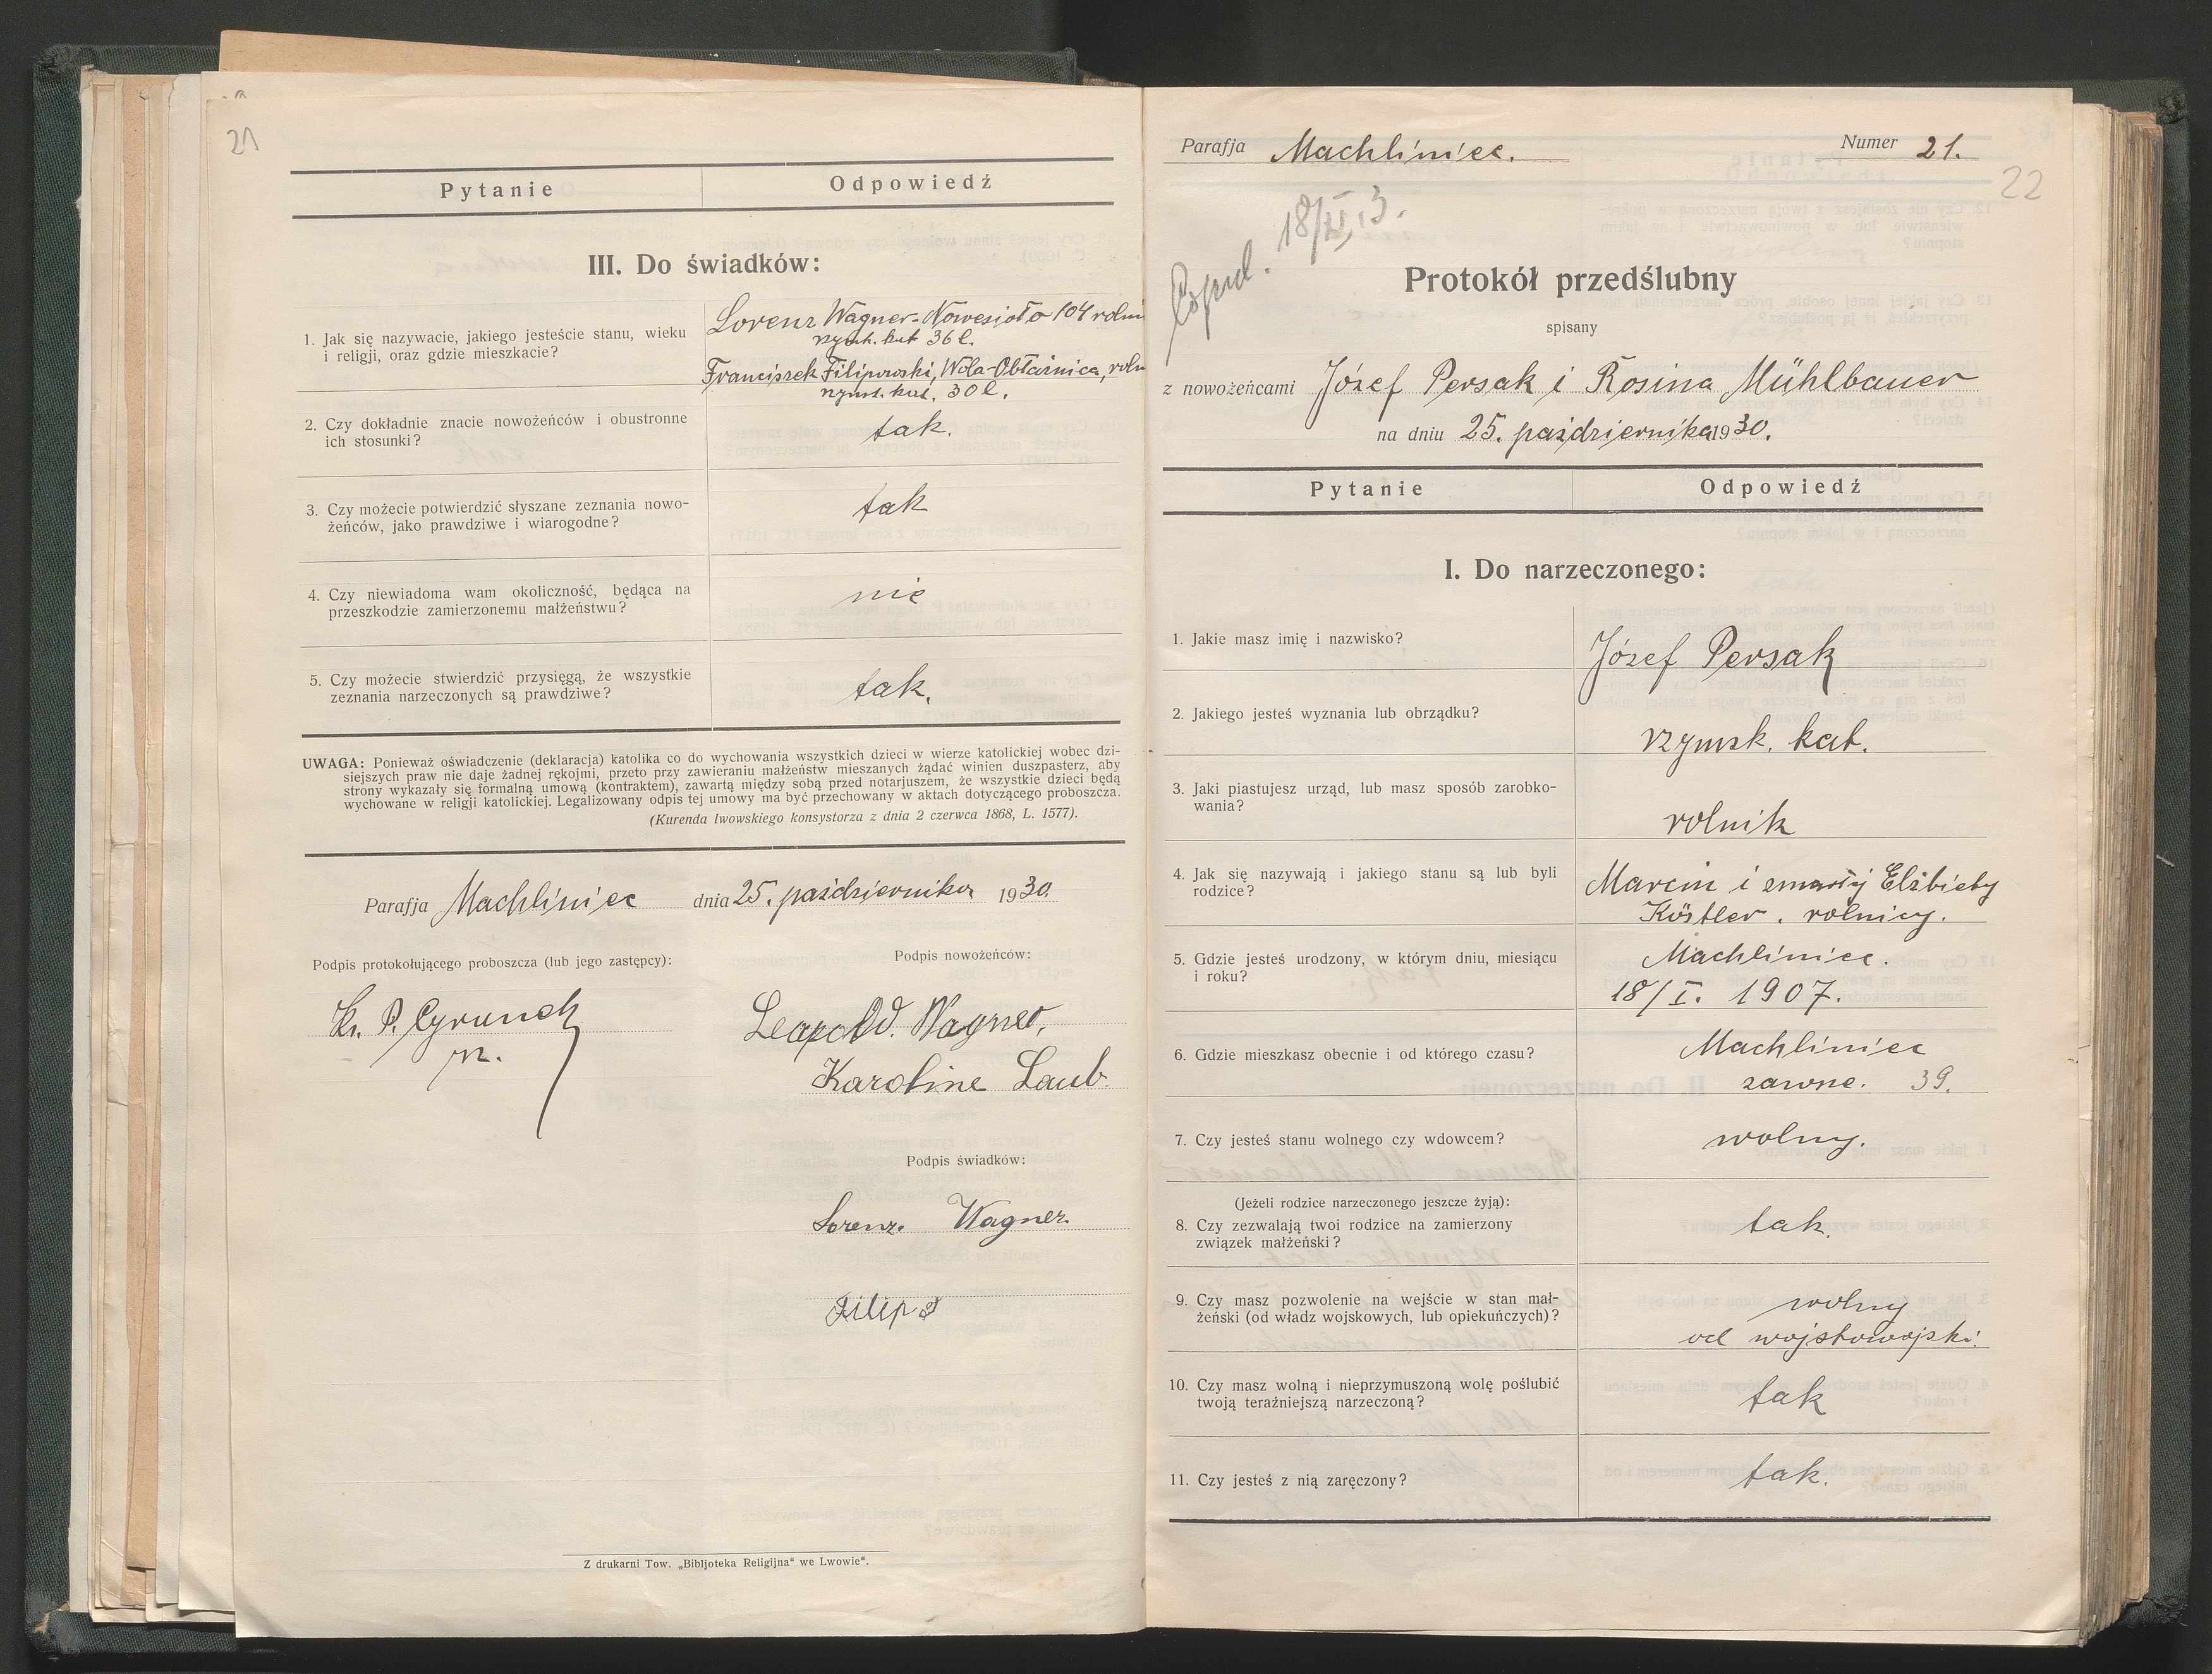 21
Pytanie
Odpowiedź
III. Do świadków:
1. Jak się nazywacie, jakiego jesteście stanu, wieku
i religji, oraz gdzie mieszkacie?
Lorenz Wagner - Nowesioło 104 rolni
rzymk. kat 36 l.
Franciszek Filipowski, Wola-Obłaźnica, roln
rzymk. kat. 30 l.
2. Czy dokładnie znacie nowożeńców i obustronne
ich stosunki?
tak.
3. Czy możecie potwierdzić słyszane zeznania nowo-
żeńców, jako prawdziwe i wiarogodne?
tak
4. Czy niewiadoma wam okoliczność, będąca na
przeszkodzie zamierzonemu małżeństwu?
nie
5. Czy możecie stwierdzić przysięgą, że wszystkie
zeznania narzeczonych są prawdziwe?
tak.
UWAGA: Ponieważ oświadczenie (deklaracja) katolika co do wychowania wszystkich dzieci w wierze katolickiej wobec dzi-
siejszych praw nie daje żadnej rękojmi, przeto przy zawieraniu małżeństw mieszanych żądać winien duszpasterz, aby
strony wykazały się formalną umową (kontraktem), zawartą między sobą przed notarjuszem, że wszystkie dzieci będą
wychowane w religji katolickiej. Legalizowany odpis tej umowy ma być przechowany w aktach dotyczącego proboszcza.
(Kurenda lwowskiego konsystorza z dnia 2 czerwca 1868, L. 1577).
Parafja Machliniec dnia 25. października 1930.
Podpis protokołującego proboszcza (lub jego zastępcy):
Podpis nowożeńców:
Leopold Wagner,
Karoline Laub.
Podpis świadków:
Lorenz. Wagner
Filip
Z drukarni Tow. „Bibljoteka Religijna“ we Lwowie“.
Parafja Machliniec. Numer 21.
22
Protokół przedślubny
spisany
z nowożeńcami Józef Persak i Rosina Mühlbauer
na dniu 25. października 1930.
Pytanie
Odpowiedź
I. Do narzeczonego:
1. Jakie masz imię i nazwisko?
Józef Persak
2. Jakiego jesteś wyznania lub obrządku?
rzymsk. kat.
3. Jaki piastujesz urząd, lub masz sposób zarobko-
wania?
rolnik
4. Jak się nazywają i jakiego stanu są lub byli
rodzice?
Marcin i zmarłej Elżbiety
Köstler. rolnicy.
5. Gdzie jesteś urodzony, w którym dniu, miesiącu
i roku?
Machliniec.
18/I. 1907.
6. Gdzie mieszkasz obecnie i od którego czasu?
Machliniec
zawsze. 39.
7. Czy jesteś stanu wolnego czy wdowcem?
wolny.
(Jeżeli rodzice narzeczonego jeszcze żyją):
8. Czy zezwalają twoi rodzice na zamierzony
związek małżeński?
tak.
9. Czy masz pozwolenie na wejście w stan mał-
żeński (od władz wojskowych, lub opiekuńczych)?
wolny
od
10. Czy masz wolną i nieprzymuszoną wolę poślubić
twoją teraźniejszą narzeczoną?
tak
11. Czy jesteś z nią zaręczony?
tak.